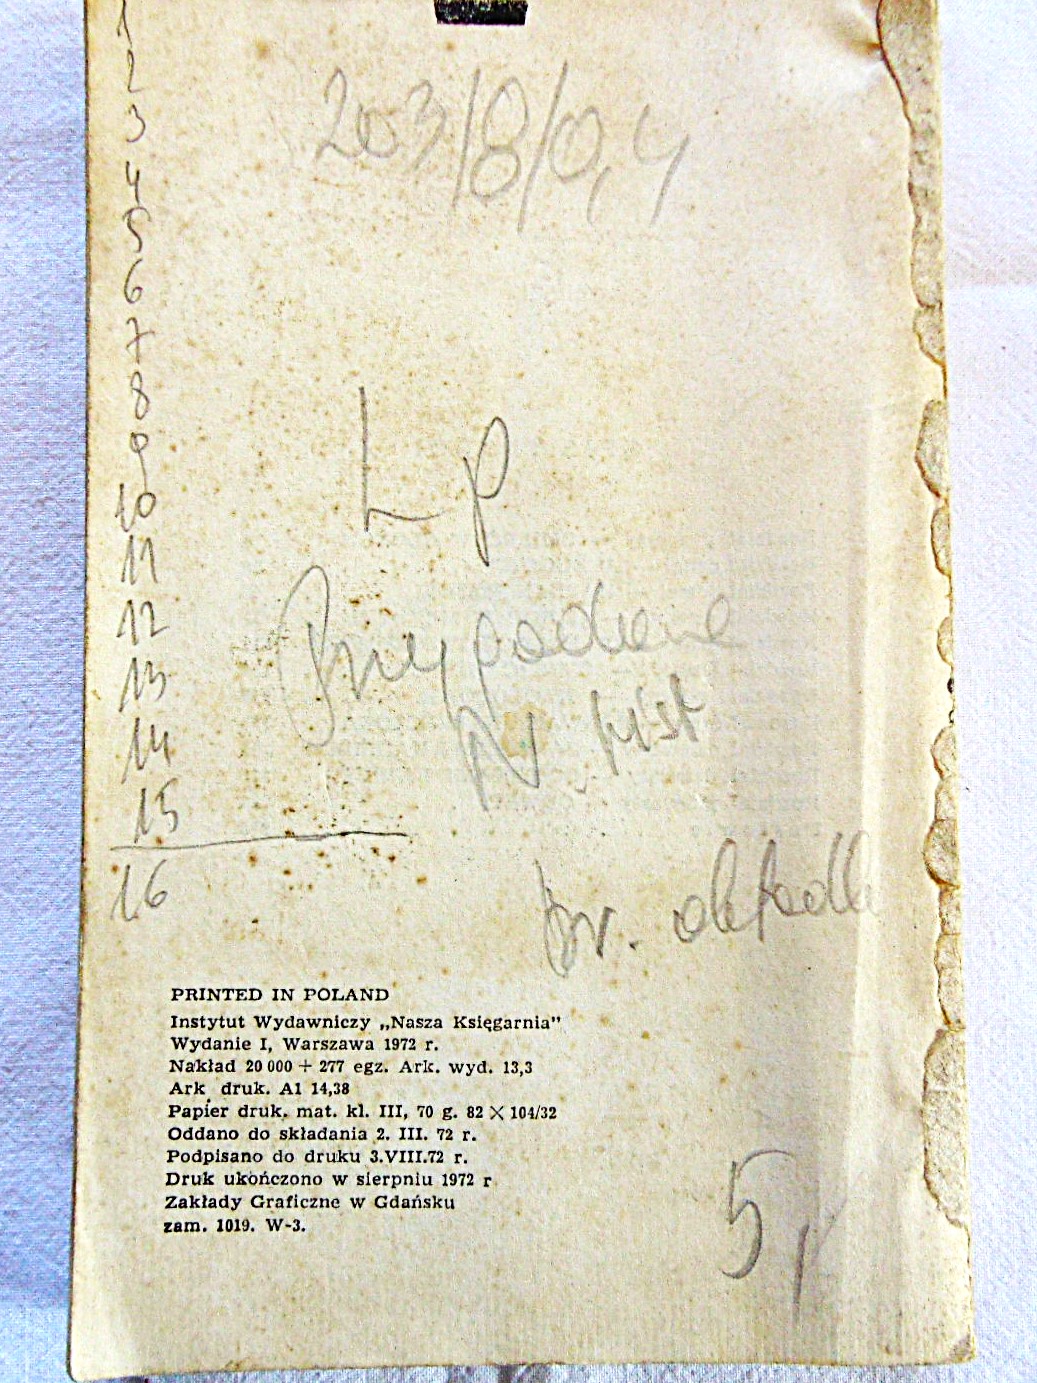 1
2
203/8/0,4
3
4
5
6
7
8
9
Lp
10
11
12
13
N hist
14
15
16
br. okładk
PRINTED IN POLAND
Instytut Wydawniczy „Nasza Księgarnia”
Wydanie I, Warszawa 1972 r.
Nakład 20 000 + 277 egz. Ark. wyd. 13,3
Ark. druk. A1 14,38
Papier druk. mat. kl. III, 70 g. 82 × 104/32
Oddano do składania 2. III. 72 r.
Podpisano do druku 3.VIII.72 r.
Druk ukończono w sierpniu 1972 r
Zakłady Graficzne w Gdańsku
zam. 1019. W-3.
5,